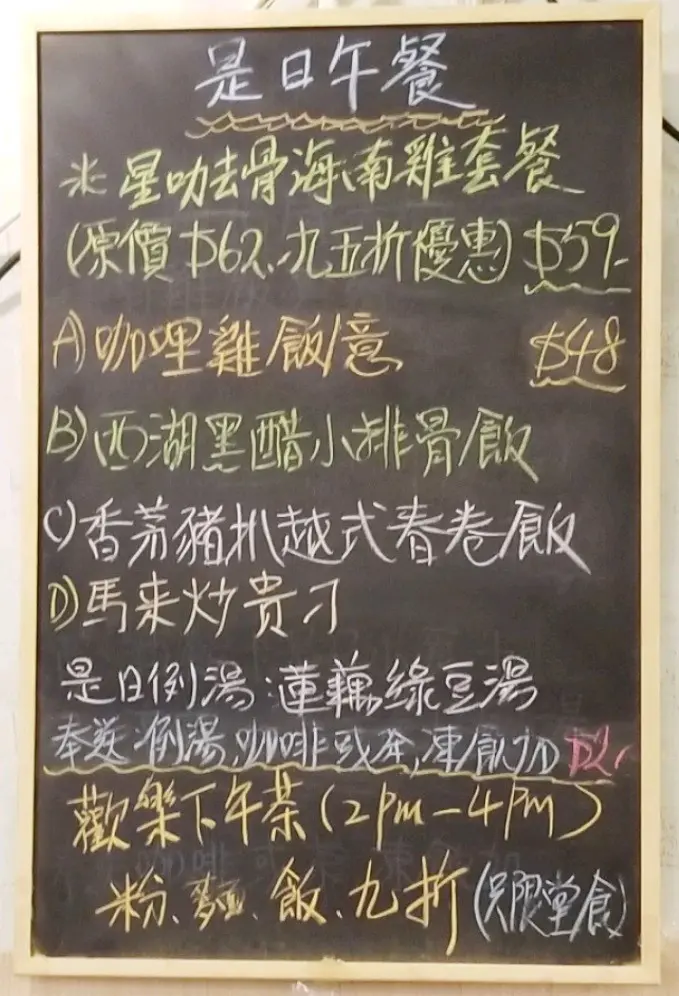 是日午餐
*星叻去骨海南雞套餐
(原價$62、九五折優惠) $59.
A)咖哩雞飯/意 $48
B)西湖黑醋小排骨飯
C)香茅豬扒越式春卷飯
D)馬来炒貴刁
是日例湯:蓮藕綠豆湯
奉送:例湯,咖啡或茶,凍飲加$2.
歡樂下午茶(2pm-4pm)
粉、麵、飯、九折(只限堂食)